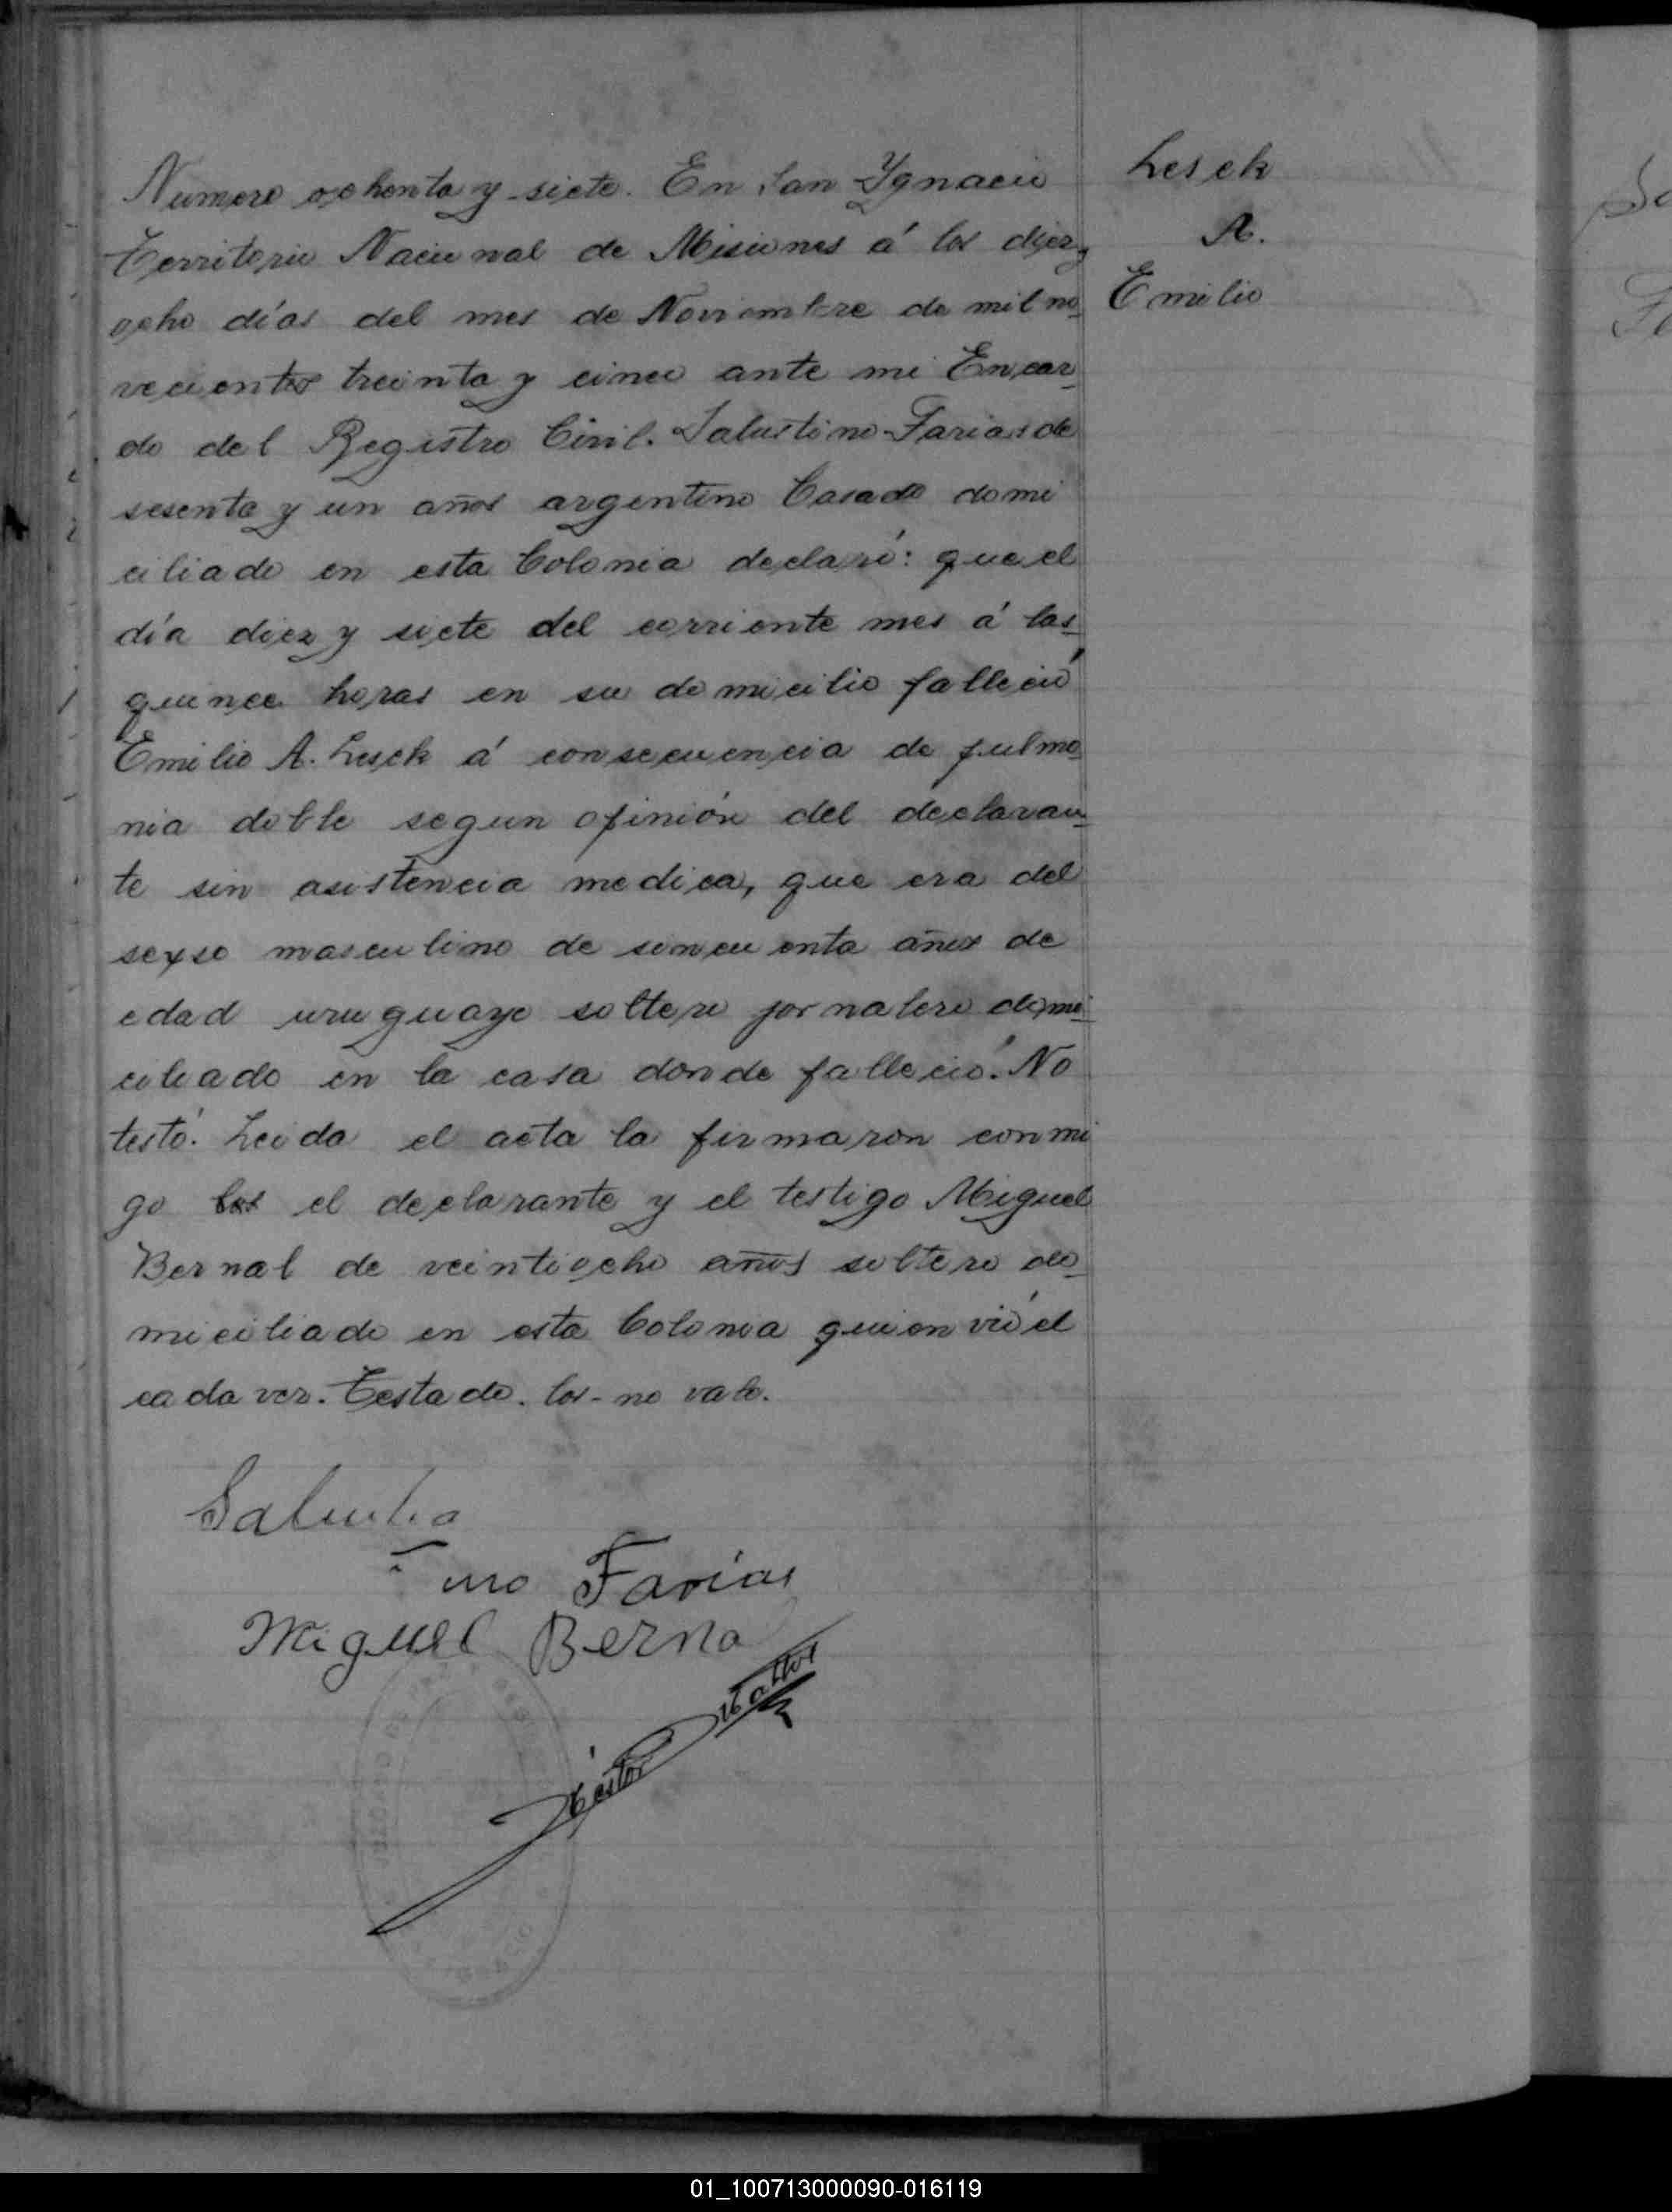 Numero ochenta y siete. En San Ygnacio
Territorio Nacional de Misiones á los diez y
ocho días del mes de Noviembre de mil no
vecientos treinta y cinco ante mi Encar
do del Registro Civil. Salustino Farias de
sesenta y un años argentino Casado domi
ciliado en esta Colonia declaró: que el
día diez y siete del corriente mes á las
quince horas en su domicilio falleció
Emilio A. Lesek á consecuencia de pulmo
nia doble segun opinión del declaran
te sin asistencia medica, que era del
sexso masculino de sincuenta años de
edad uruguayo soltero jornalero domi
ciliado en la casa donde falleció. No
testó. Leida el acta la firmaron conmi
go los el declarante y el testigo Miguel
Bernal de veintiocho años soltero do
miciliado en esta Colonia quien vió el
cadaver. Testado. los - no vale.
Salustia
tino Farías
Miguel Berna
Lesek
A.
Emilio
01_100713000090-016119